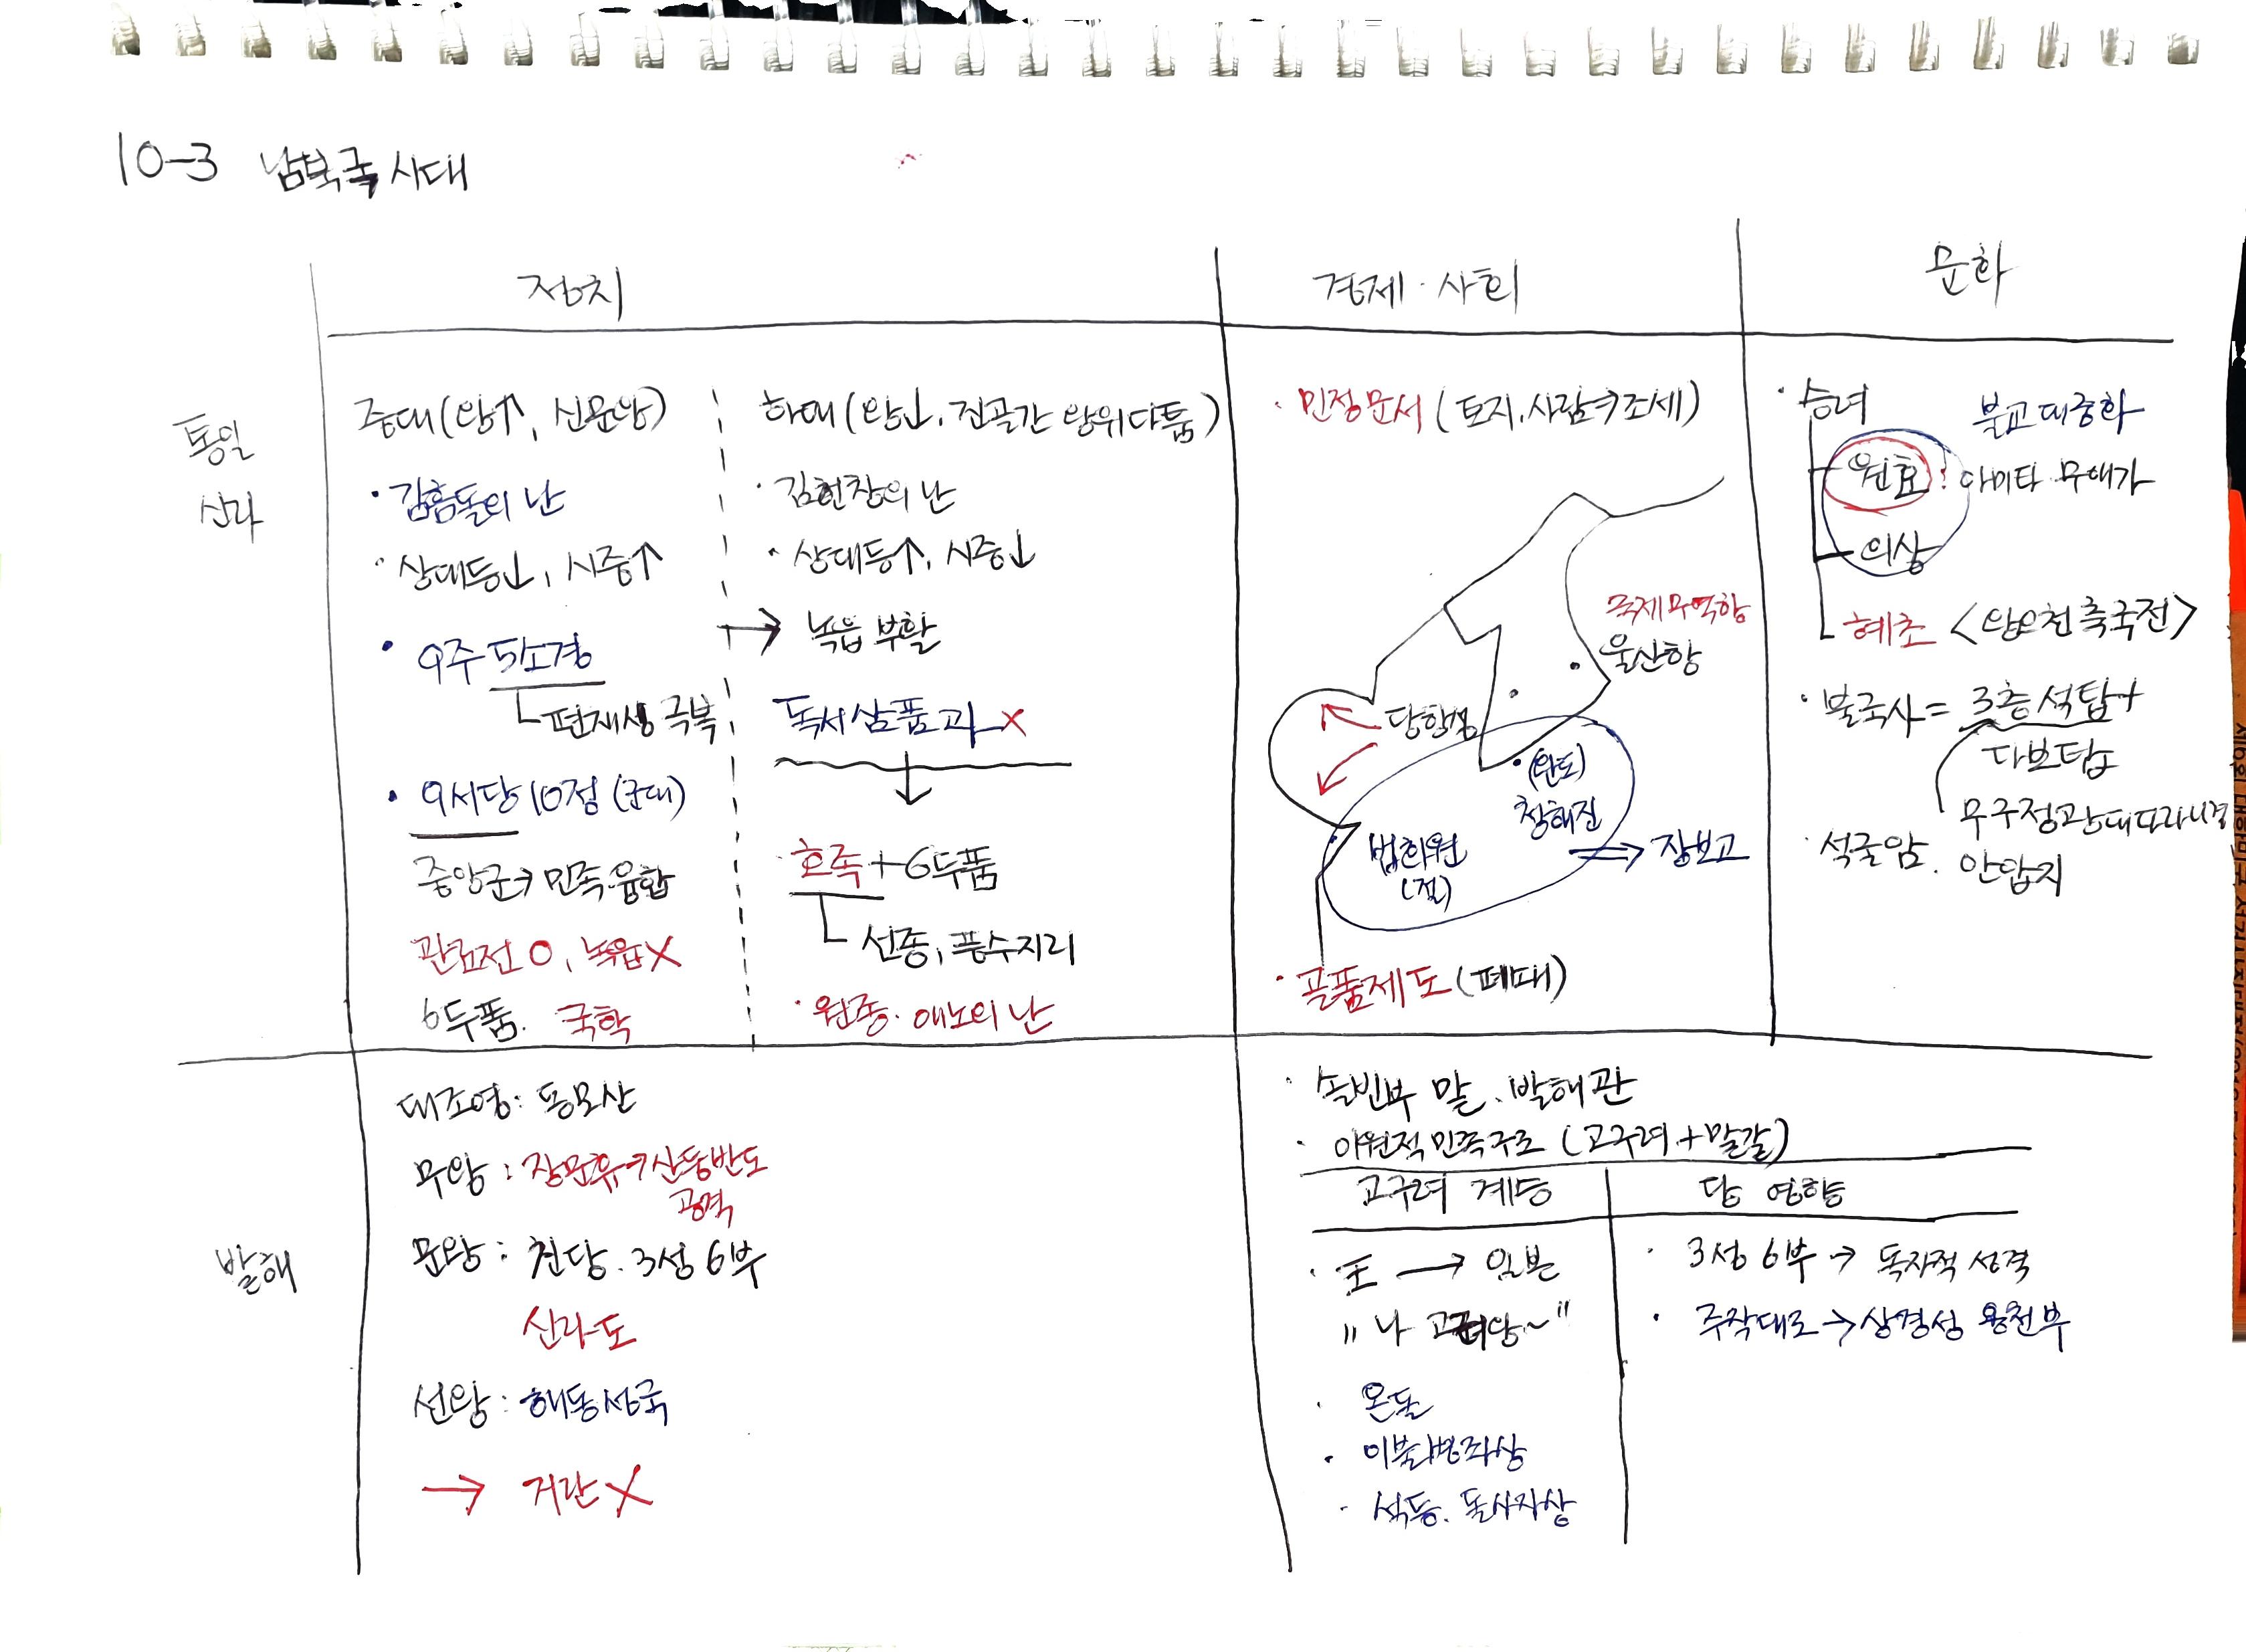 10-3 남북국 시대
정치
경제·사회
문화
통일
신라
중대(왕↑, 신문왕)
· 김흠돌의 난
· 상대등↓, 시중↑
· 9주 5소경
편재성 극복
· 9서당 10정 (군대)
중앙군→민족융합
관료전 O, 녹읍X
6두품. 국학
하대(왕↓, 진골간 왕위다툼)
· 김헌창의 난
· 상대등↑, 시중↓
→ 녹읍 부활
독서삼품과 X
호족+6두품
선종, 풍수지리
· 원종·애노의 난
· 민정문서 (토지,사람→조세)
국제무역항
울산항
당항성
·(완도)
청해진
⇒ 장보고
법화원
(절)
· 골품제도 (폐대)
· 승려
불교대중화
원효: 아미타 무애가
의상
혜초 <왕오천축국전>
· 불국사= 3층석탑+
다보탑
무구정광대다라니경
· 석굴암. 안압지
발해
대조영: 동모산
무왕: 장문휴→산동반도
공격
문왕: 친당. 3성 6부
신라도
선왕: 해동성국
→ 거란 X
· 솔빈부 말. 발해관
· 이원적민족구조 (고구려+말갈)
고구려 계승
당 영향
→ 일본
"나 고려왕~"
· 온돌
· 이불병좌상
· 석등. 돌사자상
· 3성 6부→ 독자적 성격
· 주작대로→상경성 용천부